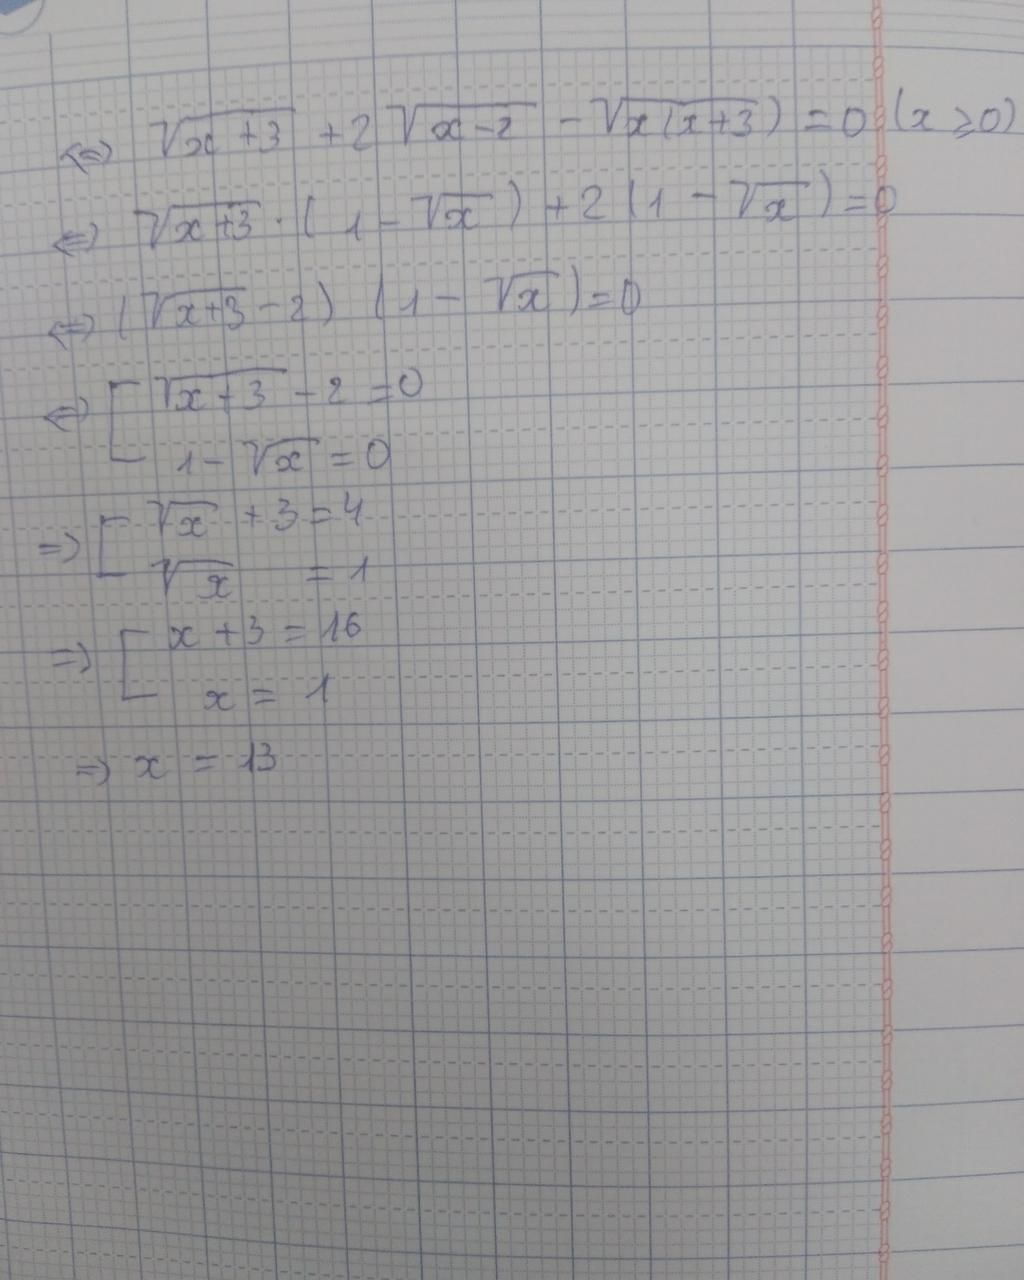 ⇔ √(x+3) + 2√(x-2) - √(x(x+3)) = 0 (x ≥ 0)
⇔ √(x+3) · (1 - √x) + 2(1 - √x) = 0
⇔ (√(x+3) - 2) (1 - √x) = 0
⇔ [ √(x+3) - 2 = 0
1 - √x = 0
⇒ [ √x + 3 = 4
√x = 1
⇒ [ x + 3 = 16
x = 1
⇒ x = 13